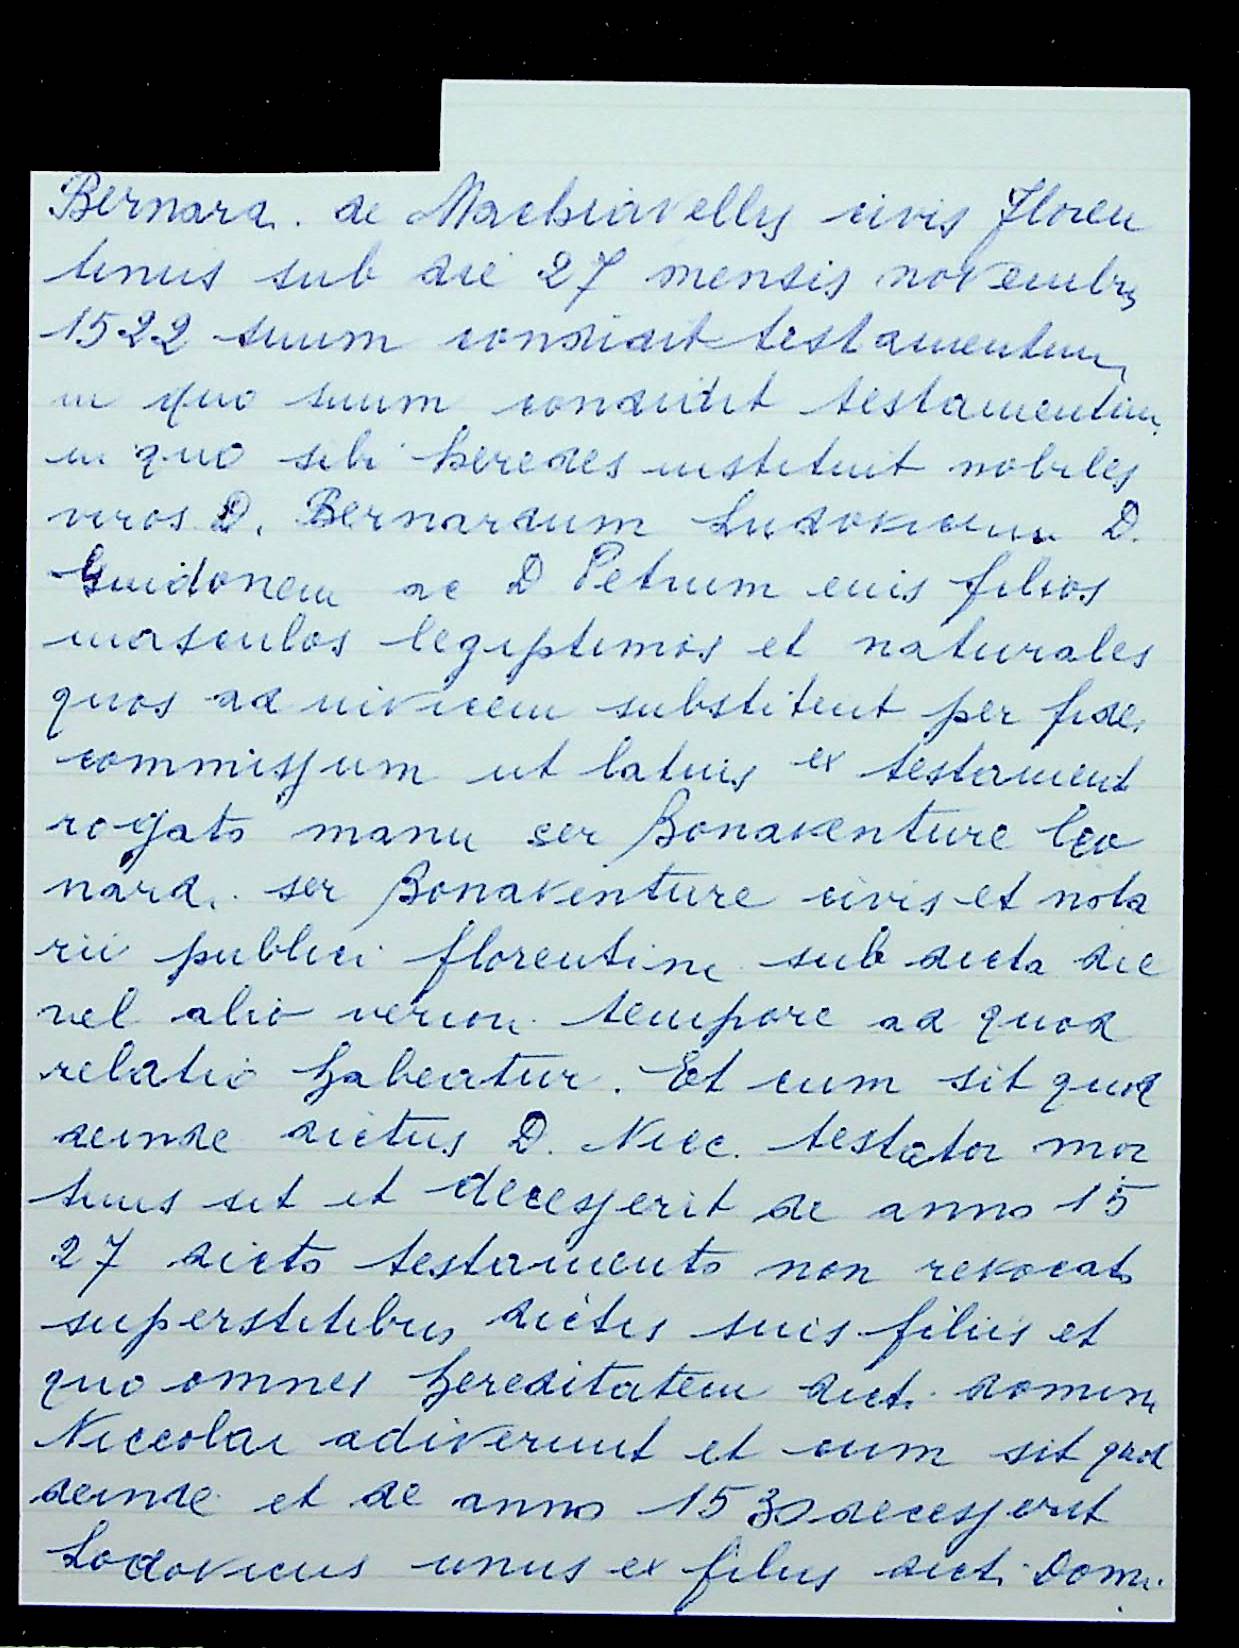 Bernard. de Machiavellis civis Floren
tinus sub die 27 mensis novembris
1522 suum condidit testamentum
in quo suum condidit testamentum
in quo sibi heredes instituit nobiles
viros D. Bernardum Ludovicum D.
Guidonem ac D Petrum eius filios
masculos legiptimos et naturales
quos ad invicem substituit per fidei
commissum ut latius ex testament
rogato manu ser Bonaventure Leo
nard. ser Bonaventure civis et nota
rii publici florentini sub dicta die
vel alio veriori tempore ad quod
relatio habeatur. Et cum sit quod
deinde dictus D. Nicc. testator mor
tuus sit et decesserit de anno 15
27 dicto testamento non revocato
superstitibus dictis suis filiis et
quo omnes hereditatem dict. domini
Niccolai adiverunt et cum sit quod
deinde et de anno 1530 decesserit
Lodovicus unus ex filiis dicti Domi.